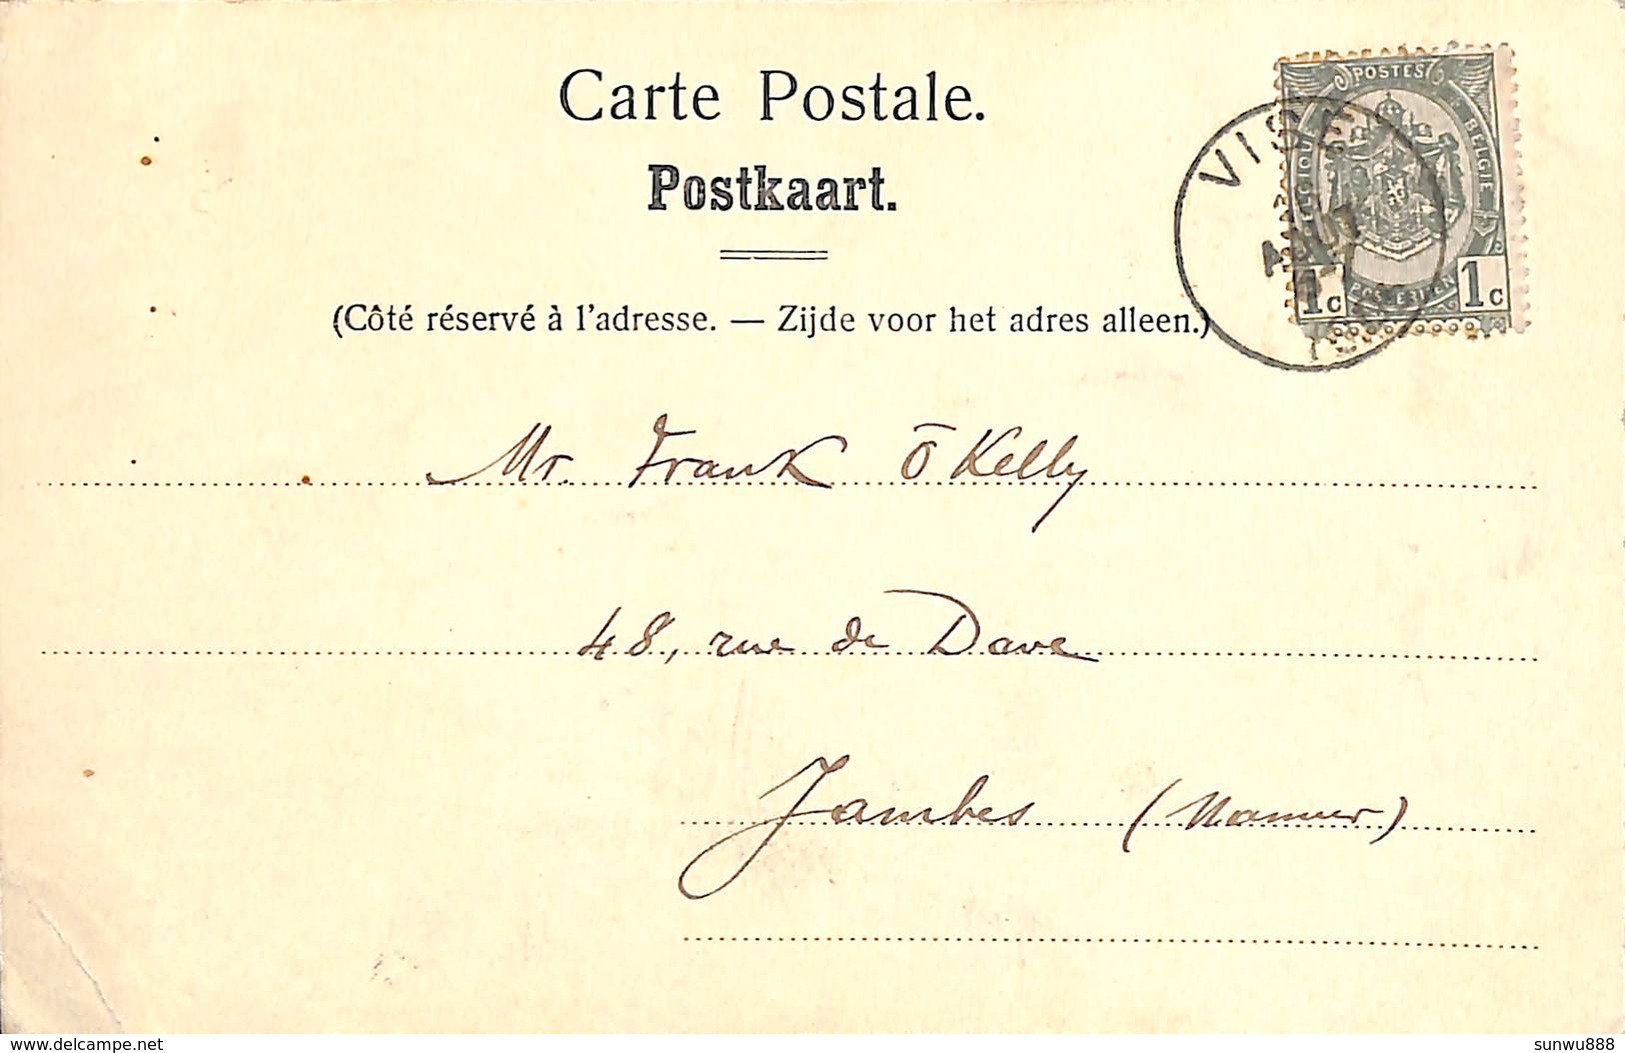 Carte Postale.
Postkaart.
(Côté réservé à l'adresse. — Zijde voor het adres alleen.)
POSTES
BELGIQUE
BELGIE
1c
POSTERIJEN
1c
VISÉ
Mr. Frank ŌKelly
48, rue de Dave
Jambes (Namur)
www.delcampe.net
sunwu888